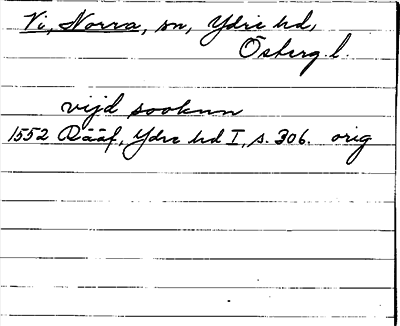 Vi, Norra, sn, Ydre hd,
Östberg. l.
vijd sooknn
1552 Rääf, Ydre hd I, s. 306. orig